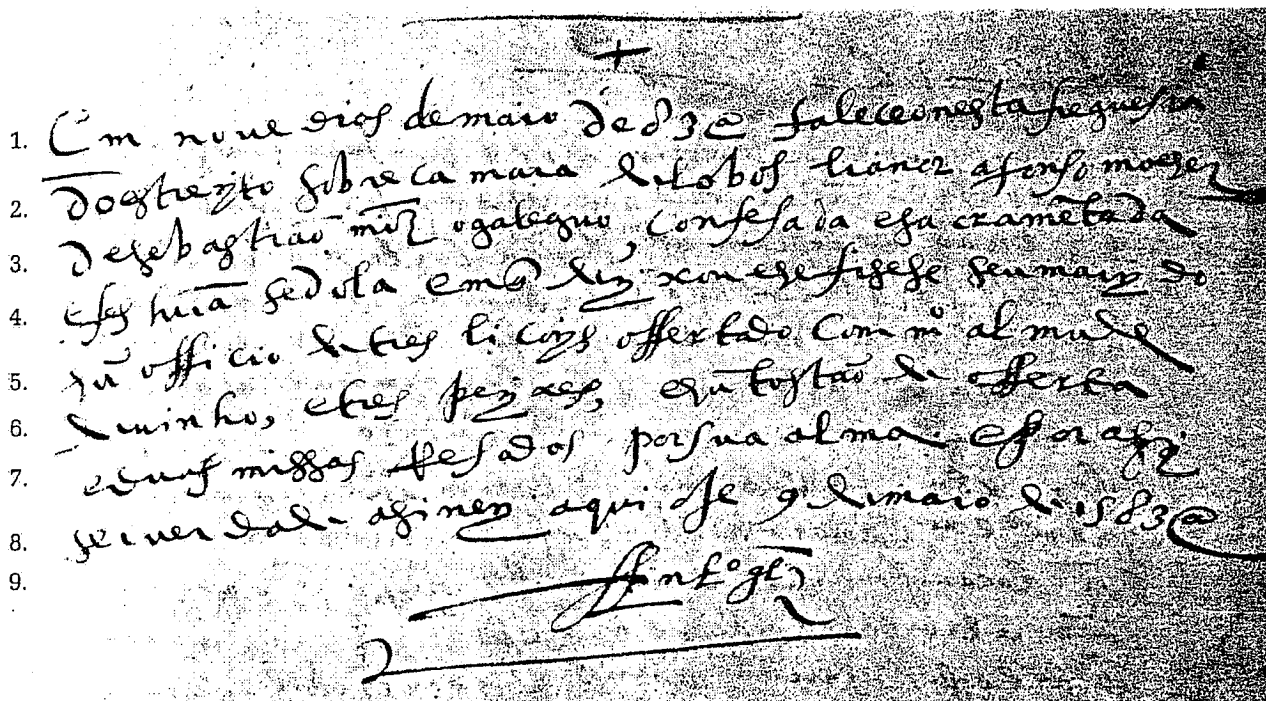 +
1. Em noue dias de maio de 83 @ faleceo nesta freguesia
2. do estreyto sobre camara de lobos lianor afonso molher
3. de sebastiaõ miz o galeguo, confesada e sacramētada
4. e fes
5. hũ officio de tres licoys offertado com almude
6. de uinho, e tres peyxes, e hũ tostaõ de offerta
7. e duas missas Resadas por sua alma e por asy
8. ser uerdade asiney aqui oje 9 de maio de 1583 @
9.